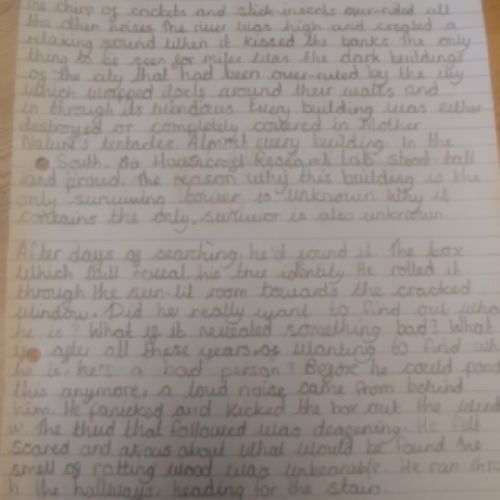 The chirp of crickets and stick insects over-ruled all
the other noises. The river was high and created a
relaxing sound when it kissed the banks. The only
thing to be seen for miles was the dark buildings
of the city that had been over-ruled by the ivy
which wrapped itself around their walls and
in through its windows. Every building was either
destroyed or completely covered in Mother
Nature's tentacles. Almost every building. In the
South, the Research Lab stood tall
and proud. The reason why this building is the
only surviving tower is unknown. Why it
contains the only survivor is also unknown.
After days of searching, he'd found it. The box
which will reveal his true identity. He rolled it
through the sun-lit room towards the cracked
window. Did he really want to find out who
he is? What if it revealed something bad? What
if after all these years of wanting to find
he is, he's a bad person? Before he could
this anymore, a loud noise came from behind
him. He panicked and kicked the box out the
w. The thud that followed was deafening. He felt
scared and about what would be found. The
smell of rotting wood was unbearable. He ran
h the hallways, heading for the stairs.